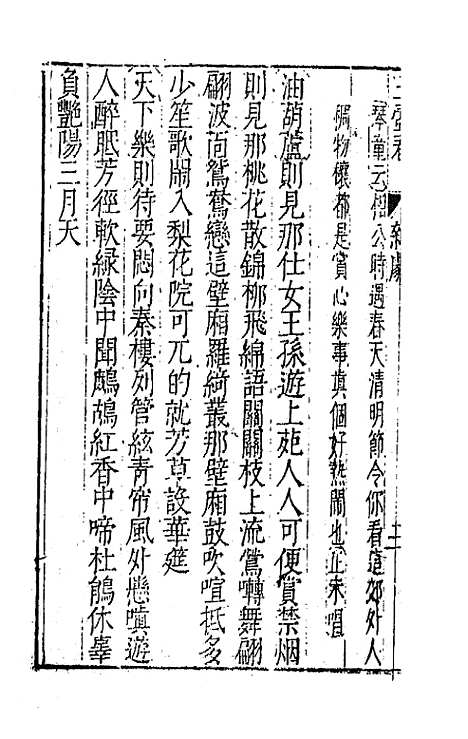 壺春 雜劇
琴童云相公時遇春天清明節令你看這郊外人
稠物穰都是賞心樂事真個好熱鬧也正末唱
油葫蘆則見那仕女王孫遊上苑人人可便賞禁烟
則見那桃花散錦柳飛綿語關關枝上流鶯囀舞翩
翩波面鴛鴦戀這壁廂羅綺叢那壁廂鼓吹喧抵多
少笙歌鬧入梨花院可兀的就芳草設華筵
天下樂則待要悶向秦樓列管絃青帘風外懸嗔遊
人醉眠芳徑軟綠陰中聞鷓鴣紅香中啼杜鵑休辜
負艷陽三月天